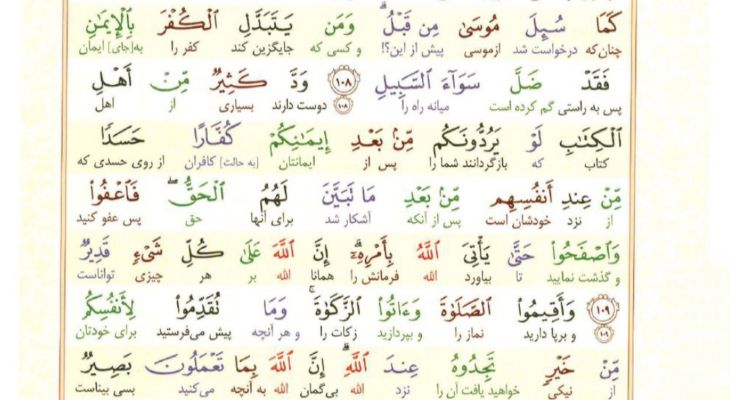 كَمَا سُئِلَ مُوسَىٰ مِن قَبْلُ ۗ وَمَن يَتَبَدَّلِ ٱلْكُفْرَ بِٱلْإِيمَٰنِ
چنان‌که درخواست شد ازموسی پیش از این؟! و کسی که جایگزین کند کفر را به[جای] ایمان
فَقَدْ ضَلَّ سَوَآءَ ٱلسَّبِيلِ ١٠٨ وَدَّ كَثِيرٌ مِّنْ أَهْلِ
پس به راستی گم کرده است میانه راه را ١٠٨ دوست دارند بسیاری از اهل
ٱلْكِتَٰبِ لَوْ يَرُدُّونَكُم مِّنۢ بَعْدِ إِيمَٰنِكُمْ كُفَّارًا حَسَدًا
کتاب که بازگردانند شما را پس از ایمانتان [به حالت] کافران از روی حسدی که
مِّنْ عِندِ أَنفُسِهِم مِّنۢ بَعْدِ مَا تَبَيَّنَ لَهُمُ ٱلْحَقُّ ۖ فَٱعْفُوا۟
از نزد خودشان است پس از آنکه آشکار شد برای آنها حق پس عفو کنید
وَٱصْفَحُوا۟ حَتَّىٰ يَأْتِىَ ٱللَّهُ بِأَمْرِهِۦٓ ۗ إِنَّ ٱللَّهَ عَلَىٰ كُلِّ شَىْءٍ قَدِيرٌ
و گذشت نمایید تا بیاورد الله فرمانش را همانا الله بر هر چیزی تواناست
١٠٩ وَأَقِيمُوا۟ ٱلصَّلَوٰةَ وَءَاتُوا۟ ٱلزَّكَوٰةَ ۚ وَمَا تُقَدِّمُوا۟ لِأَنفُسِكُم
١٠٩ و برپا دارید نماز را و بپردازید زکات را و هر آنچه پیش می‌فرستید برای خودتان
مِّنْ خَيْرٍ تَجِدُوهُ عِندَ ٱللَّهِ ۗ إِنَّ ٱللَّهَ بِمَا تَعْمَلُونَ بَصِيرٌ
از نیکی خواهید یافت آن را نزد الله بی‌گمان الله به آنچه می‌کنید بسی بیناست